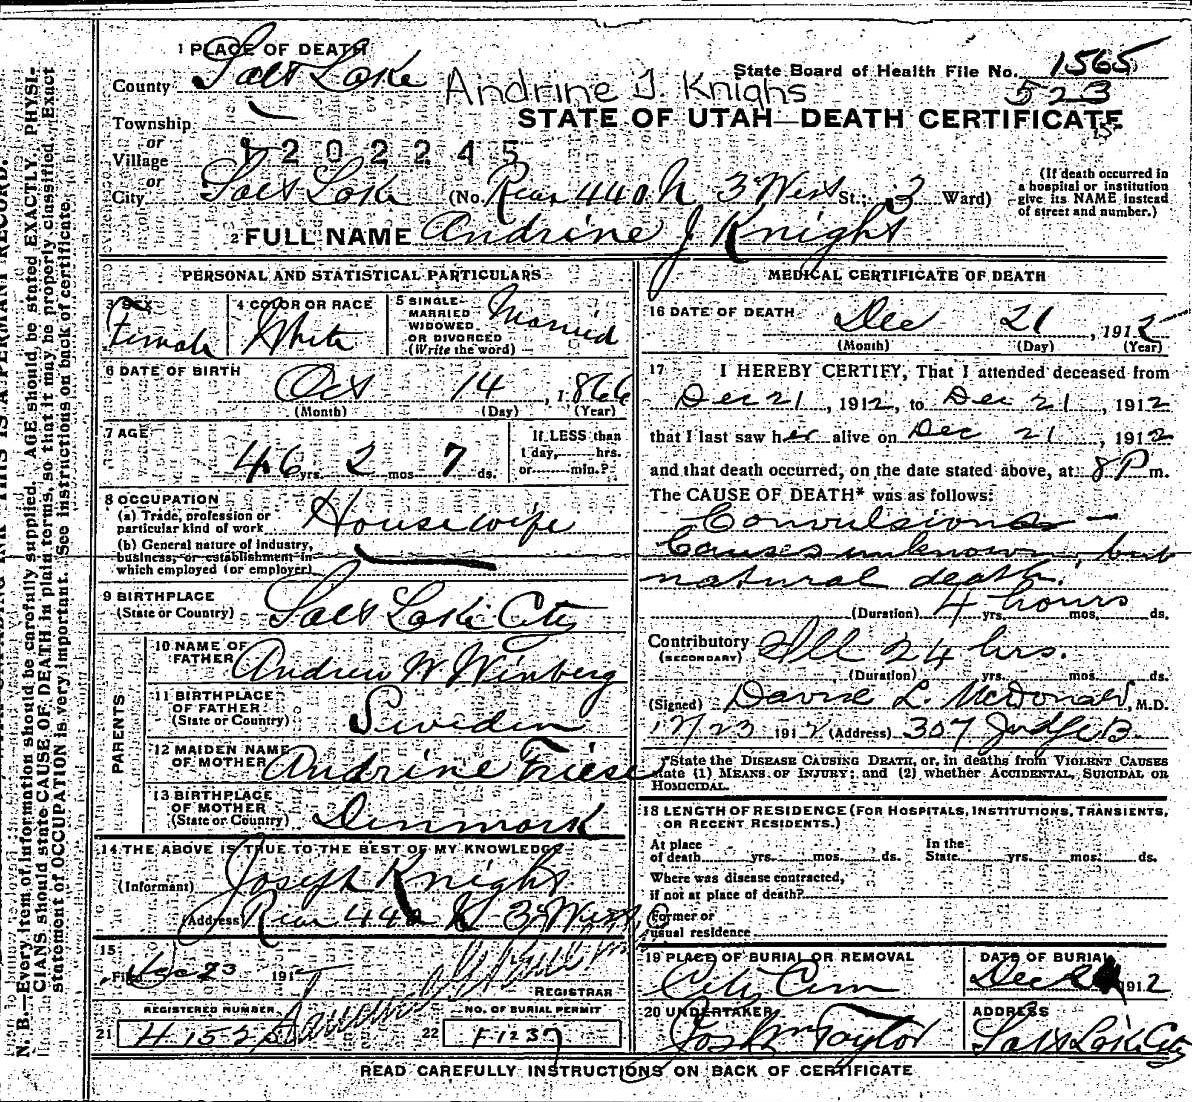 1 PLACE OF DEATH
County Salt Lake
Andrine J. Knighs
State Board of Health File No. 1565
523
Township
STATE OF UTAH—DEATH CERTIFICATE
or
Village
1202245
or
City Salt Lake (No. Rear 440 N 3 West St.; 3 Ward)
(If death occurred in a hospital or institution give its NAME instead of street and number.)
2 FULL NAME Andrine J Knight
PERSONAL AND STATISTICAL PARTICULARS
3 SEX Female
4 COLOR OR RACE White
5 SINGLE MARRIED WIDOWED OR DIVORCED (Write the word) Married
6 DATE OF BIRTH Oct 14, 1866
(Month) (Day) (Year)
7 AGE 46 yrs. 2 mos 7 ds.
If LESS than 1 day, hrs. or min.?
8 OCCUPATION
(a) Trade, profession or particular kind of work Housewife
(b) General nature of industry, business, or establishment in which employed (or employer)
9 BIRTHPLACE (State or Country) Salt Lake City
PARENTS
10 NAME OF FATHER Andrew W Winberg
11 BIRTHPLACE OF FATHER (State or Country) Sweden
12 MAIDEN NAME OF MOTHER Andrine Friese
13 BIRTHPLACE OF MOTHER (State or Country) Denmark
14 THE ABOVE IS TRUE TO THE BEST OF MY KNOWLEDGE
(Informant) Joseph Knight
(Address) Rear 440 N 3 West
15
Filed Dec 23 191
REGISTRAR
REGISTERED NUMBER
21 H 152
NO. OF BURIAL PERMIT
22 F1237
MEDICAL CERTIFICATE OF DEATH
16 DATE OF DEATH Dec 21, 1912
(Month) (Day) (Year)
17 I HEREBY CERTIFY, That I attended deceased from
Dec 21, 1912, to Dec 21, 1912
that I last saw her alive on Dec 21, 1912
and that death occurred, on the date stated above, at 8 P m.
The CAUSE OF DEATH* was as follows:
Convulsions —
Causes unknown, but
natural death.
(Duration) 4 hours yrs. mos. ds.
Contributory (SECONDARY) Ill 24 hrs.
(Duration) yrs. mos. ds.
(Signed) David L. McDonald, M.D.
12/23 1912 (Address) 307 Judge B.
*State the DISEASE CAUSING DEATH, or, in deaths from VIOLENT CAUSES
state (1) MEANS OF INJURY; and (2) whether ACCIDENTAL, SUICIDAL OR
HOMICIDAL.
18 LENGTH OF RESIDENCE (FOR HOSPITALS, INSTITUTIONS, TRANSIENTS,
OR RECENT RESIDENTS.)
At place of death yrs. mos. ds. In the State yrs. mos. ds.
Where was disease contracted,
if not at place of death?
Former or
usual residence
19 PLACE OF BURIAL OR REMOVAL City Cem
DATE OF BURIAL Dec 24 1912
20 UNDERTAKER Jos Wm Taylor
ADDRESS Salt Lake City
READ CAREFULLY INSTRUCTIONS ON BACK OF CERTIFICATE
THIS IS A PERMANENT RECORD.
N. B.—Every item of information should be carefully supplied. AGE should be stated EXACTLY. PHYSI-
CIANS should state CAUSE OF DEATH in plain terms, so that it may be properly classified. Exact
statement of OCCUPATION is very important. See instructions on back of certificate.